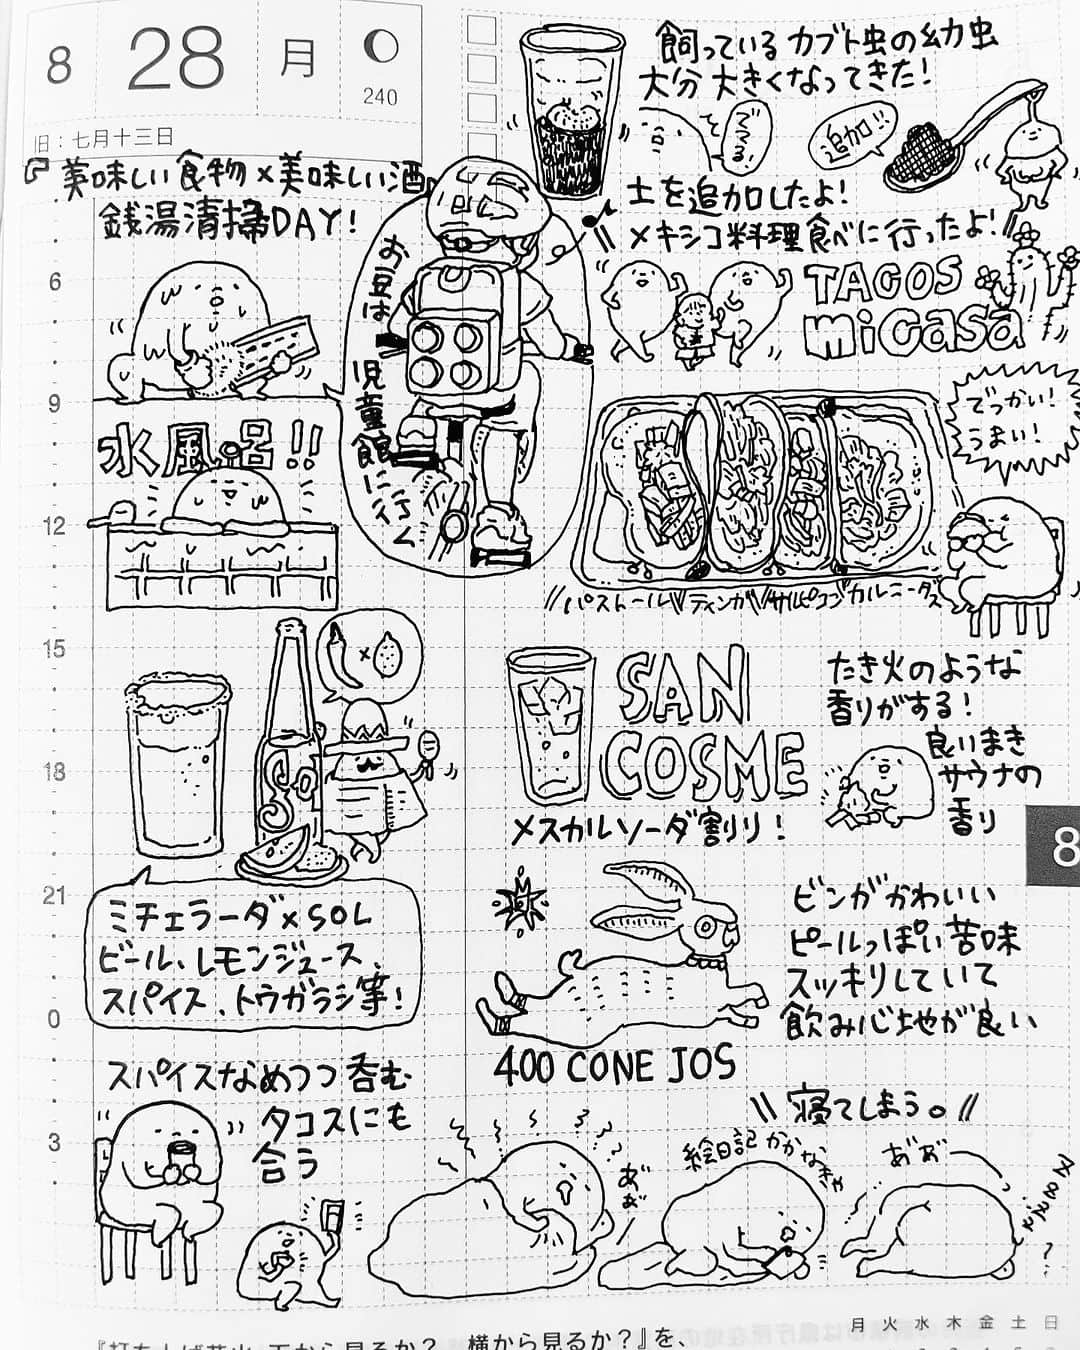 8 28 月
240
旧：七月十三日
『美味しい食物×美味しい酒』
銭湯清掃DAY!
6
9
12
15
18
21
0
3
水風呂!!
お豆は
児童館に行く
飼っているカブト虫の幼虫
大分大きくなってきた!
でてる!
追加!!
土を追加したよ!
メキシコ料理食べに行ったよ!
TACOS
mi casa
でっかい!
うまい!
パストール
ティンガ
サルピコン
カルニータス
×
ミチェラーダ×SOL
ビール、レモンジュース、
スパイス、トウガラシ等!
SAN
COSME
メスカルソーダ割り!
たき火のような
香りがする!
良いまき
サウナの
香り
8
400 CONEJOS
ビンがかわいい
ピールっぽい苦味
スッキリしていて
飲み心地が良い
スパイスなめつつ呑む
タコスにも
合う
寝てしまう。
あ゛ぁ゛
絵日記かかなきゃ
あ゛ぁ゛ー
月 火 水 木 金 土 日
横から見るか?』を、